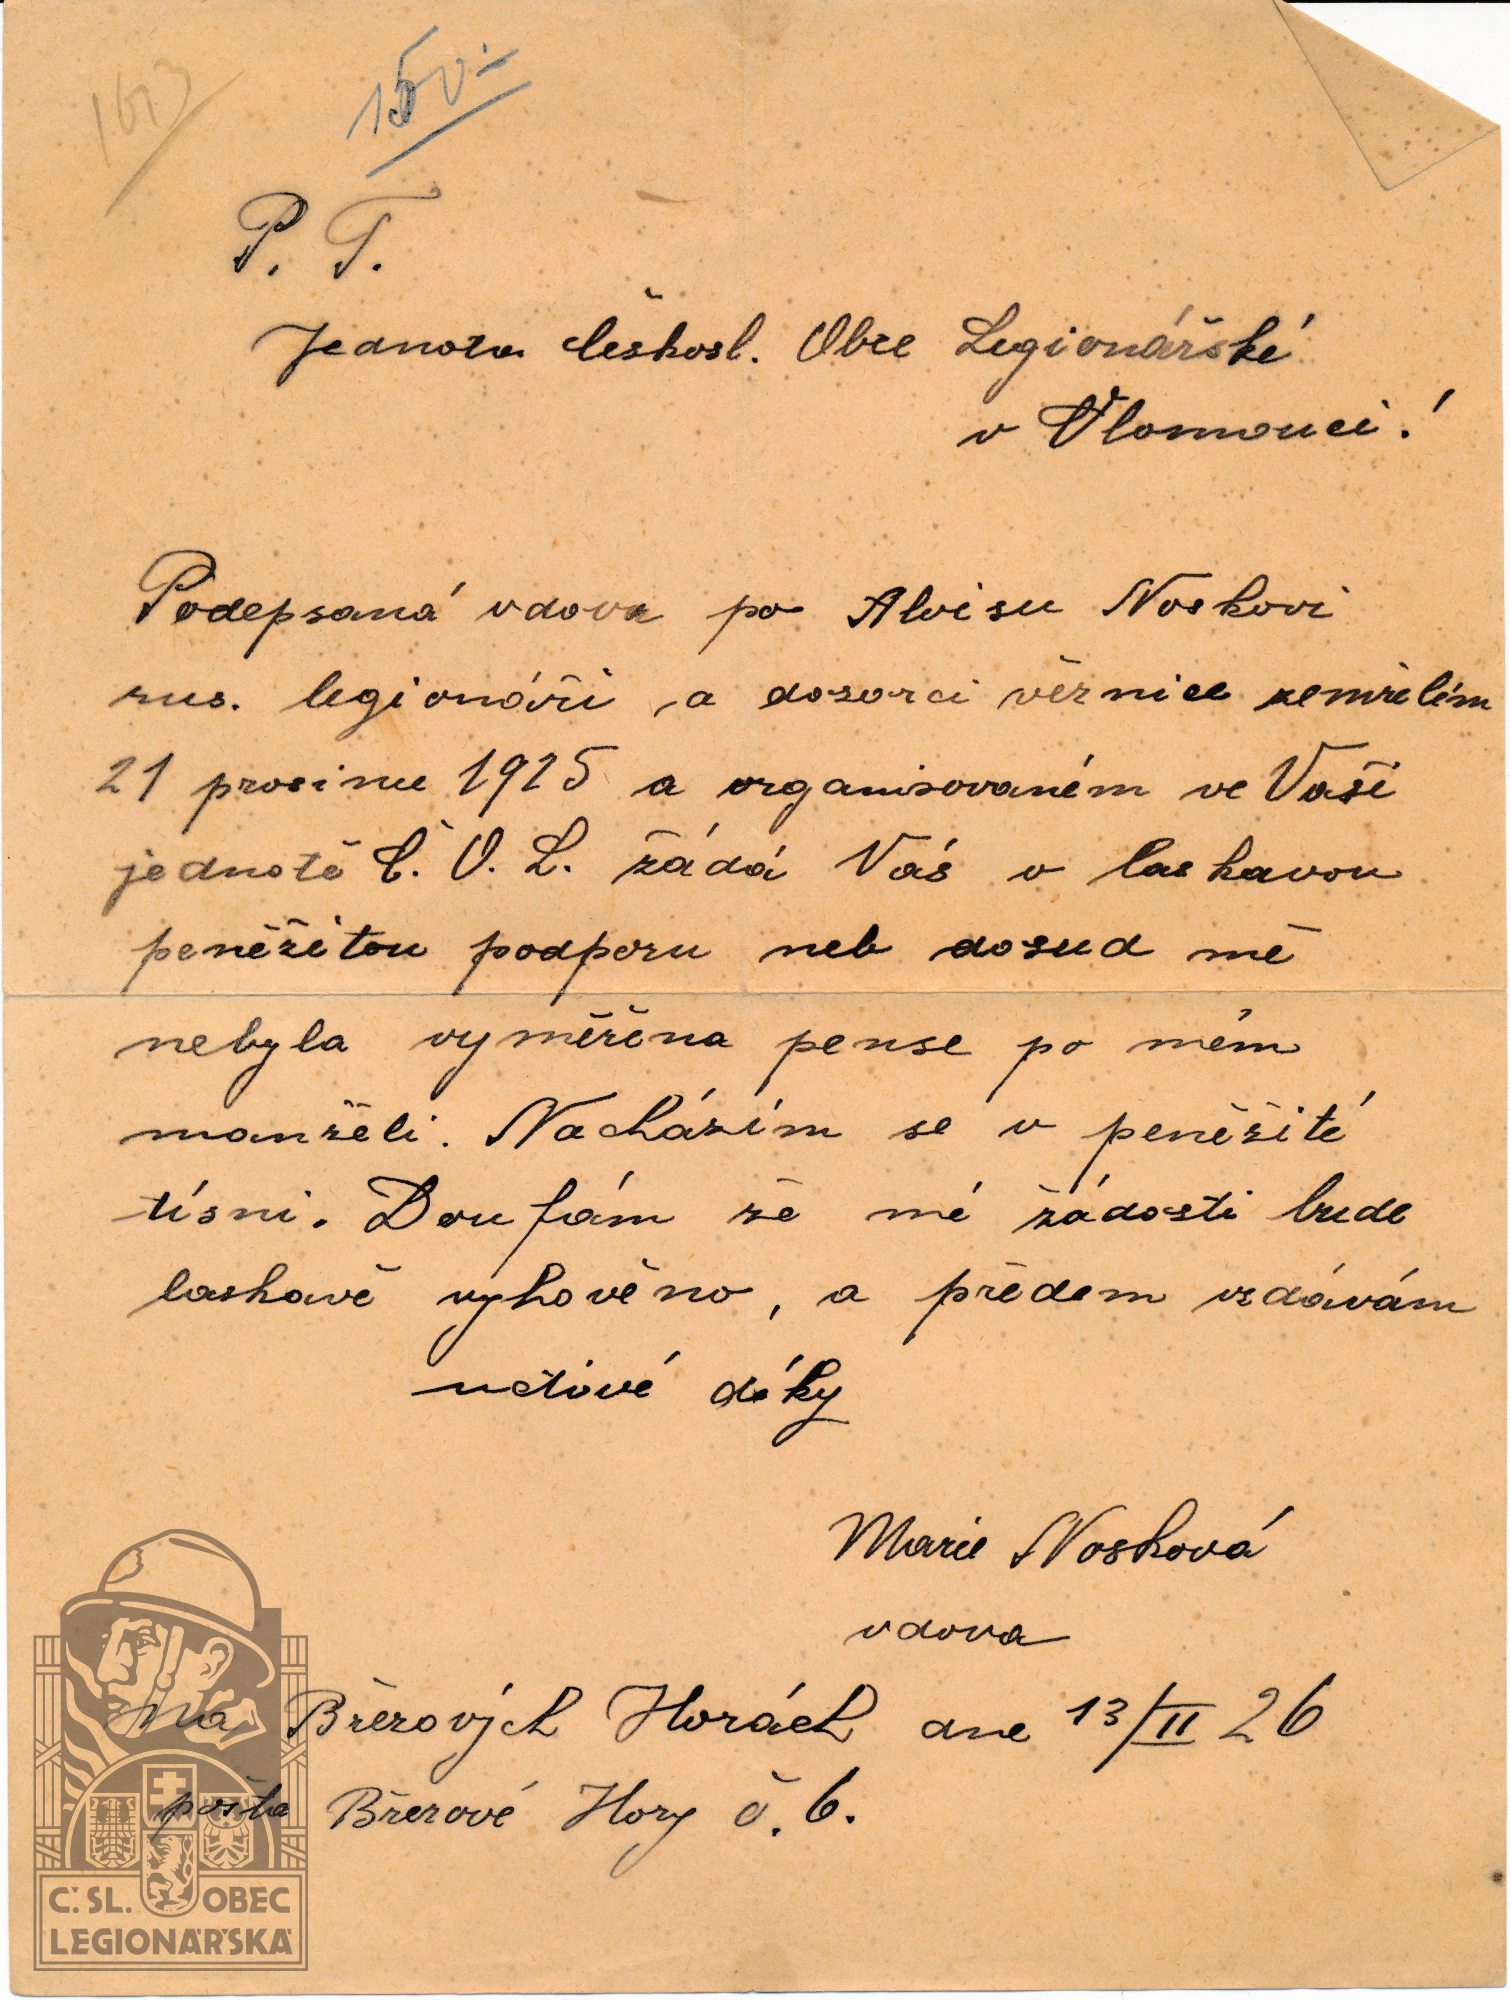 150.-
P. T.
Jednota Českosl. Obce Legionářské
v Olomouci!
Podepsaná vdova po Aloisu Noskovi
rus. legionáři, a dozorci věznice zemřelém
21 prosince 1925 a organisovaném ve Vaší
jednotě Č. O. L. žádá Vás o laskavou
peněžitou podporu neb dosud mě
nebyla vyměřena pense po mém
manželi. Nacházím se v peněžité
tísni. Doufám že mé žádosti bude
laskavě vyhověno, a předem vzdávám
uctivé díky
Marie Nosková
vdova
na Březových Horách dne 13/II 26
pošta Březové Hory č. 6.
Č. SL. OBEC
LEGIONÁŘSKÁ